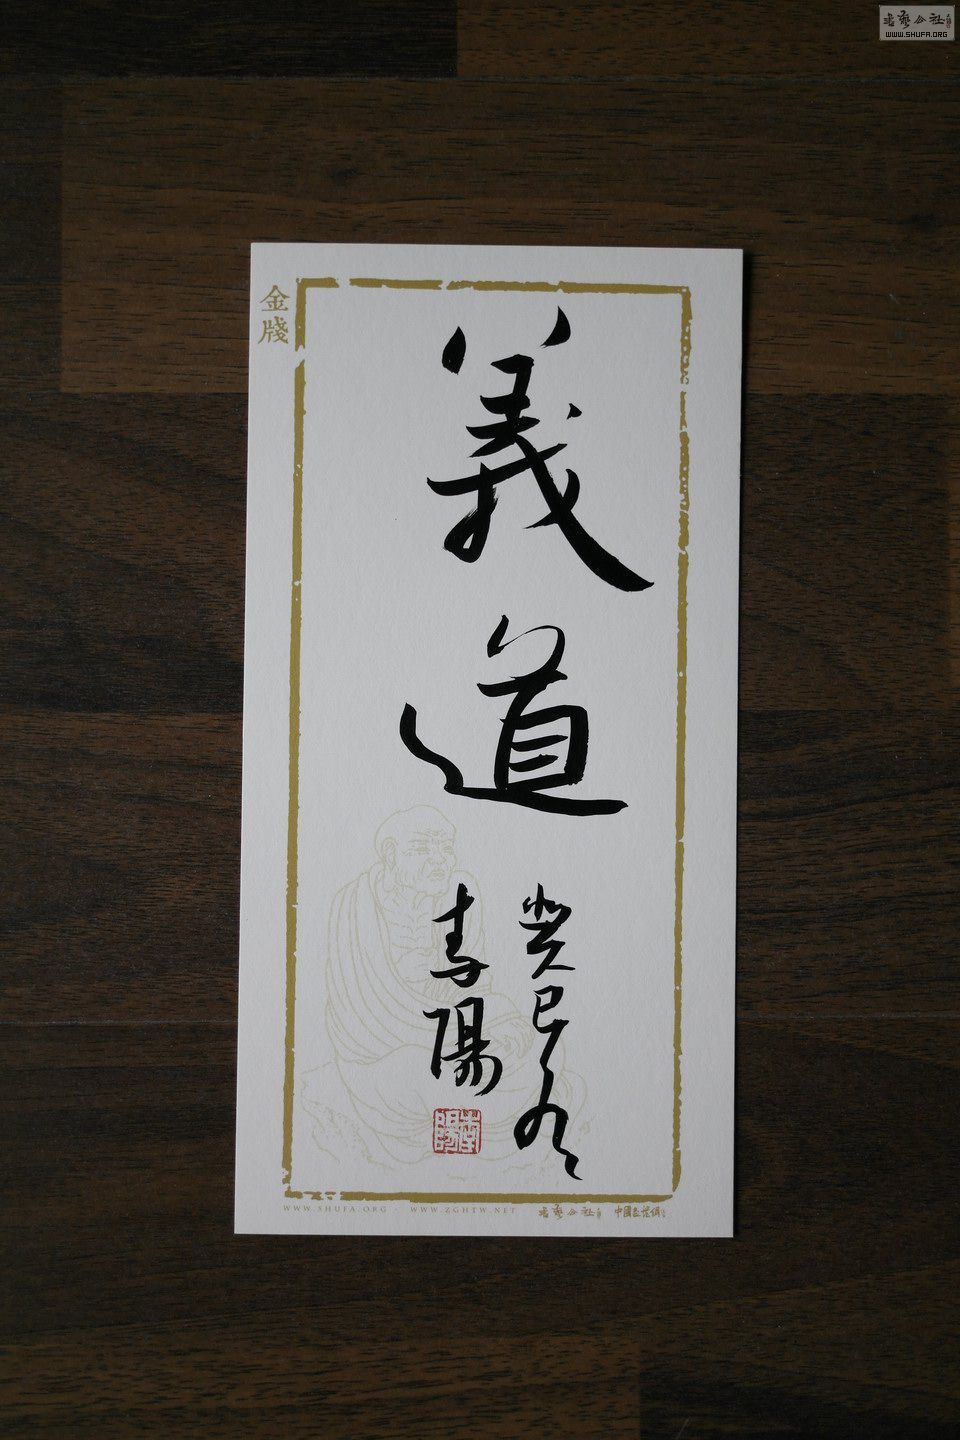 書藝公社
WWW.SHUFA.ORG
金牋
義道
癸巳冬
李陽
WWW.SHUFA.ORG · WWW.ZGHTW.NET 書藝公社